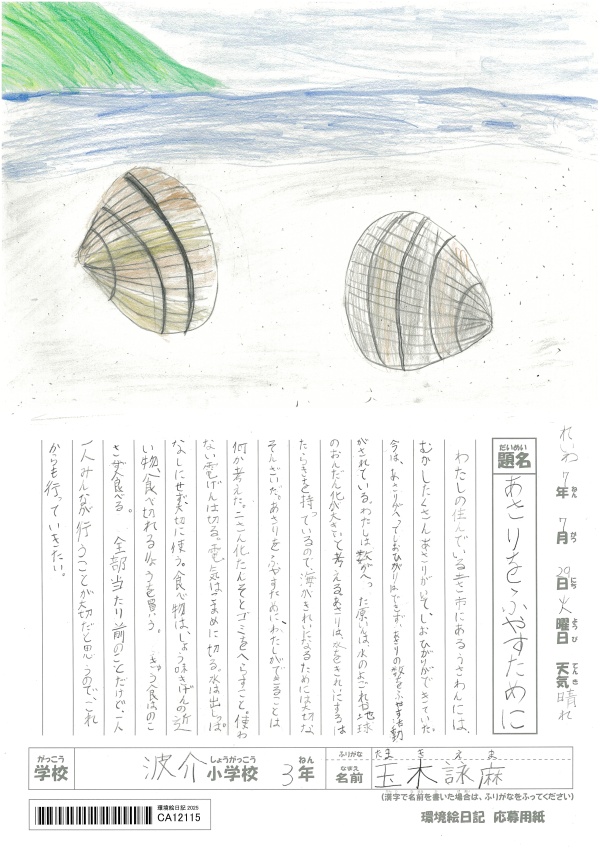 れいわ7年7月29日火曜日 天気晴れ
ねん がつ にち ようび てんき
だいめい
題名 あさりをふやすために
わたしの住んでいる土佐市にあるうさわんには、
むかしたくさんあさりがいて、しおひがりができていた。
今は、あさりがへってしおひがりはできず、あさりの数をふやす活動
がされている。わたしは、数がへった原いんは、水のよごれや地球
のおんだん化が大きいと考える。あさりは、水をきれいにするは
たらきを持っているので、海がきれいになるためには大切な
そんざいだ。あさりをふやすために、わたしができることは
何か考えた。二さん化たんそとゴミをへらすこと。使わ
ない電げんは切る。電気はこまめに切る。水は出しっぱ
なしにせず大切に使う。食べ物は、しょうみきげんの近
い物、食べ切れるりょうを買う。きゅう食はのこ
さず食べる。全部当たり前のことだけど、一人
一人みんなが行うことが大切だと思うので、これ
からも行っていきたい。
がっこう しょうがっこう ねん ふりがな たまきえま
学校 波介小学校 3年 なまえ 名前 玉木詠麻
(漢字で名前を書いた場合は、ふりがなをふってください)
環境絵日記 2025
CA12115
環境絵日記 応募用紙